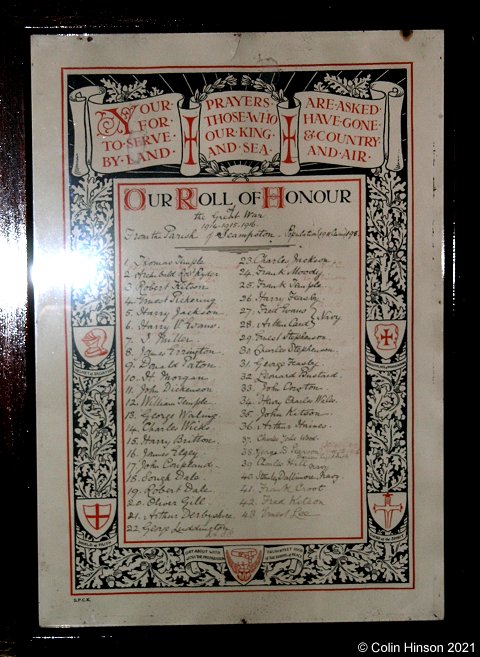 YOUR · PRAYERS · ARE · ASKED ·
FOR · THOSE · WHO HAVE · GONE
TO · SERVE · OUR · KING · & · COUNTRY
BY · LAND · AND · SEA · AND · AIR ·
OUR ROLL OF HONOUR
the Great War
1914-1915-1916.
From the Parish of Scampston. Population
1 Thomas Temple
2 Archibald Ryder
3 Robert Kitson
4 Ernest Pickering
5 Harry Jackson
6 Harry Evans
7
8 James
9 Donald Eaton
10 H. Morgan
11 John Dickenson
12 William Temple
13 George Waling
14 Charles Wicks
15 Harry Britton
16 James Elgey
17 John Coupland
18 Dale
19 Robert Dale
20 Oliver Gilt
21 Arthur Derbyshire
22 George Luddington
23 Charles Jackson
24 Frank Moody
25 Frank Temple
26 Harry
27 Fred Evans
28 Arthur Navy
29 Ernest Stephenson
30 Charles Stephenson
31 George
32 Leonard Bustard
33 John Coxton
34 Henry Charles Wiles
35 John Kitson
36 Arthur Haines
37 Charles Wood
38 George D. Pearson
39 Charles Hill Navy
40 Stanley Dallimore Navy
41 Frank Croot
42 Fred Kitson
43 Ernest Lee
SHIELD of FAITH
S.P.C.K.
© Colin Hinson 2021